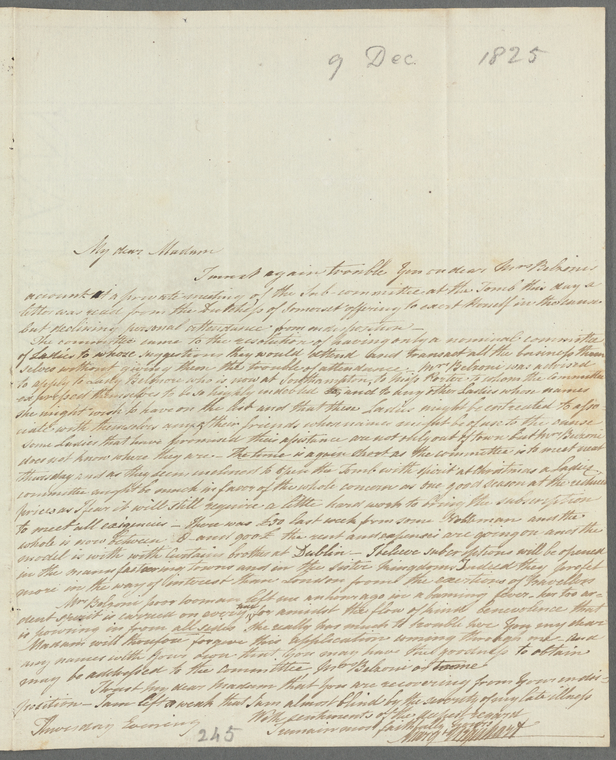 9 Dec. 1825
My dear Madam
I must again trouble you on dear Mrs Belzonis
account at a private meeting of the Sub-committee at the Tomb this day a
letter was read from the Dutchess of Somerset offering to exert herself in the cause
but declining personal attendance from indisposition —
The committee came to the resolution of having only a nominal committee
of Ladies to whose suggestions they would attend and transact all the business them
selves without giving them the trouble of attendance — Mrs Belzoni was advised
to apply to Lady Belmore who is now at Southampton, to Miss Porter to whom the Committee
expressed themselves to be so highly indebted and to any other Ladies whose names
she might wish to have on the list and that these Ladies might be entreated to asso
ciate with themselves any of their friends whose names might be of use to the cause
some Ladies that have promised their assistance are not only out of town but Mrs Belzoni
does not know where they are — The time is again short as the committee is to meet next
thursday and as they determined to open the Tomb with spirit at Christmas a Ladies
committee might be much in favor of the whole concern as one good season at the reduced
prices as I fear it will still require a little hard work to bring the subscription
to meet all exigencies — there was £50 last week from some Nobleman and the
whole is now between and 900£ the rent and expenses are going on and the
model is with with certain brother at Dublin — I believe subscriptions will be opened
in the manufacturing towns and in the Sister Kingdoms, Indeed they profit
more in the way of interest than London from the exertions of Travellers
Mrs Belzoni poor woman left me an hour ago in a burning fever her too ar
dent spirit is carried on over amidst the flow of kind benevolence that
is pouring in from all sides She really has much to trouble her You my dear
Madam will forgive this application coming through me and
any names with your own that you may have the goodness to obtain
may be addressed to the committee Mrs Belzoni or to me
I trust my dear Madam that you are recovering from your indis-
position — I am left so weak that I am almost blind by the severity of my late illness
With sentiments of the highest regard
I remain most faithfully yours
Thursday Evening
245